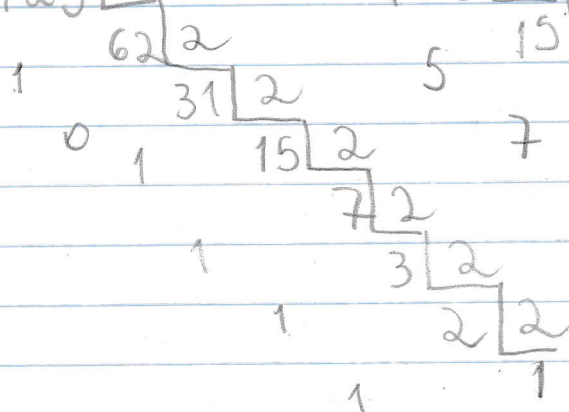 62 2 15
1 31 2 5
0 1 15 2 7
7 2
1 3 2
1 2 2
1 1